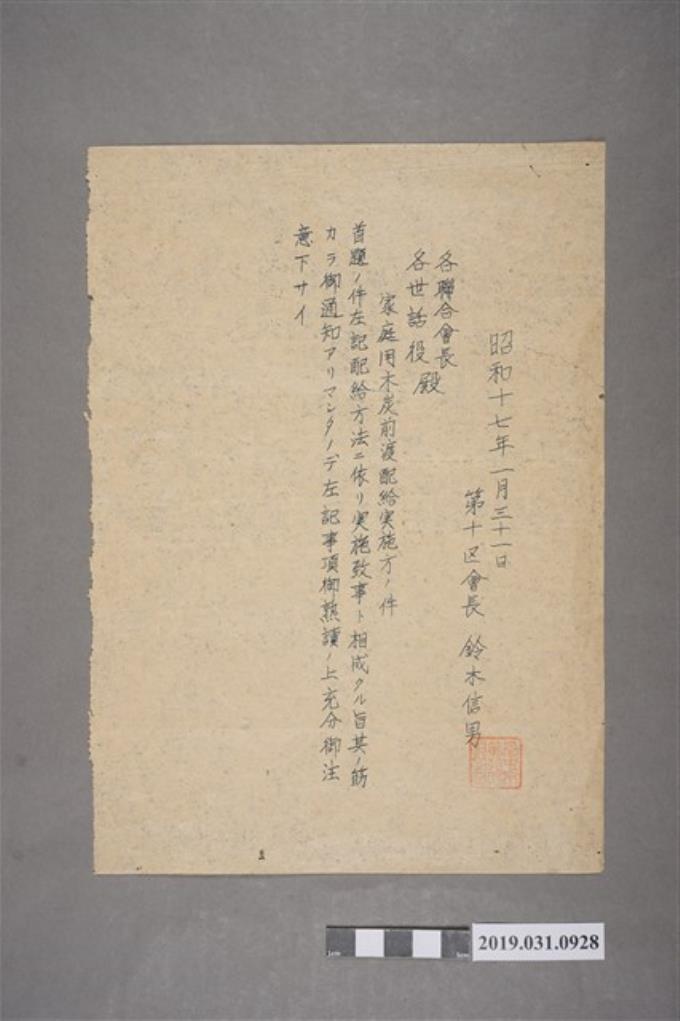 昭和十七年一月三十一日
第十区會長 鈴木信男
各聯合會長
各世話役殿
家庭用木炭前渡配給実施方ノ件
首題ノ件左記配給方法ニ依リ実施致事ト相成タル旨其ノ筋
カラ御通知アリマシタノデ左記事項御熟讀ノ上充分御注
意下サイ
2019.031.0928